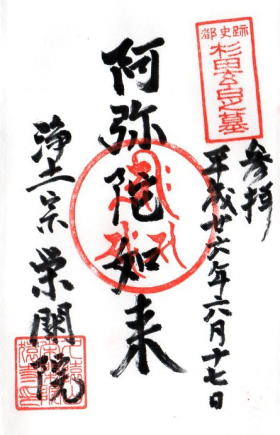 都史跡
杉田玄白之墓
参拝
平成廿六年六月十七日
阿弥陀如来
浄土宗 栄閑院